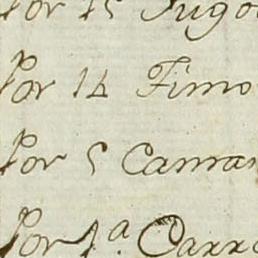 Por 15 Jugo
Por 14 Fimo
Por 5 Camar
Por 1.ª Carra